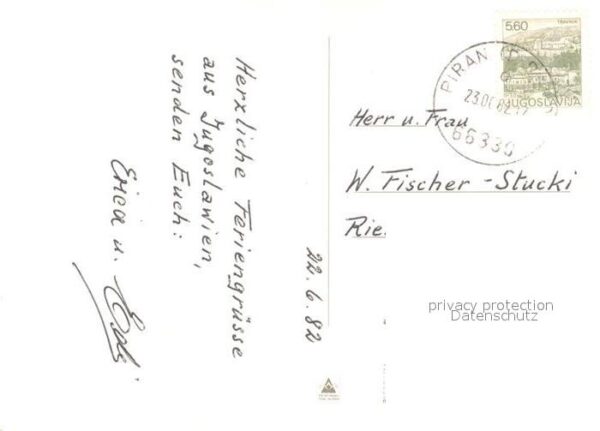 Herzliche Feriengrüsse
aus Jugoslawien,
senden Euch:
Erica u.
22.6.82
5.60
JUGOSLAVIJA
PIRAN
23.06.82
66330
Herr u. Frau
W. Fischer-Stucki
Rie.
privacy protection
Datenschutz